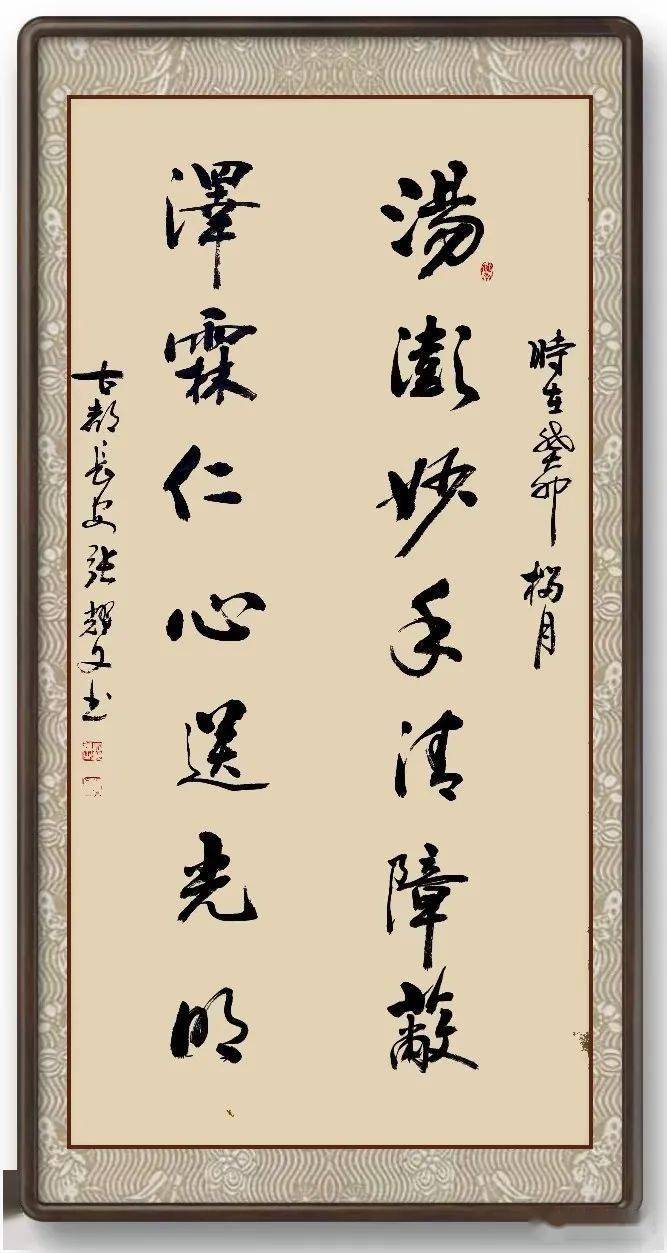 時在癸卯梅月
湯澎妙手清障蔽
澤霖仁心送光明
古都長安張耀文書